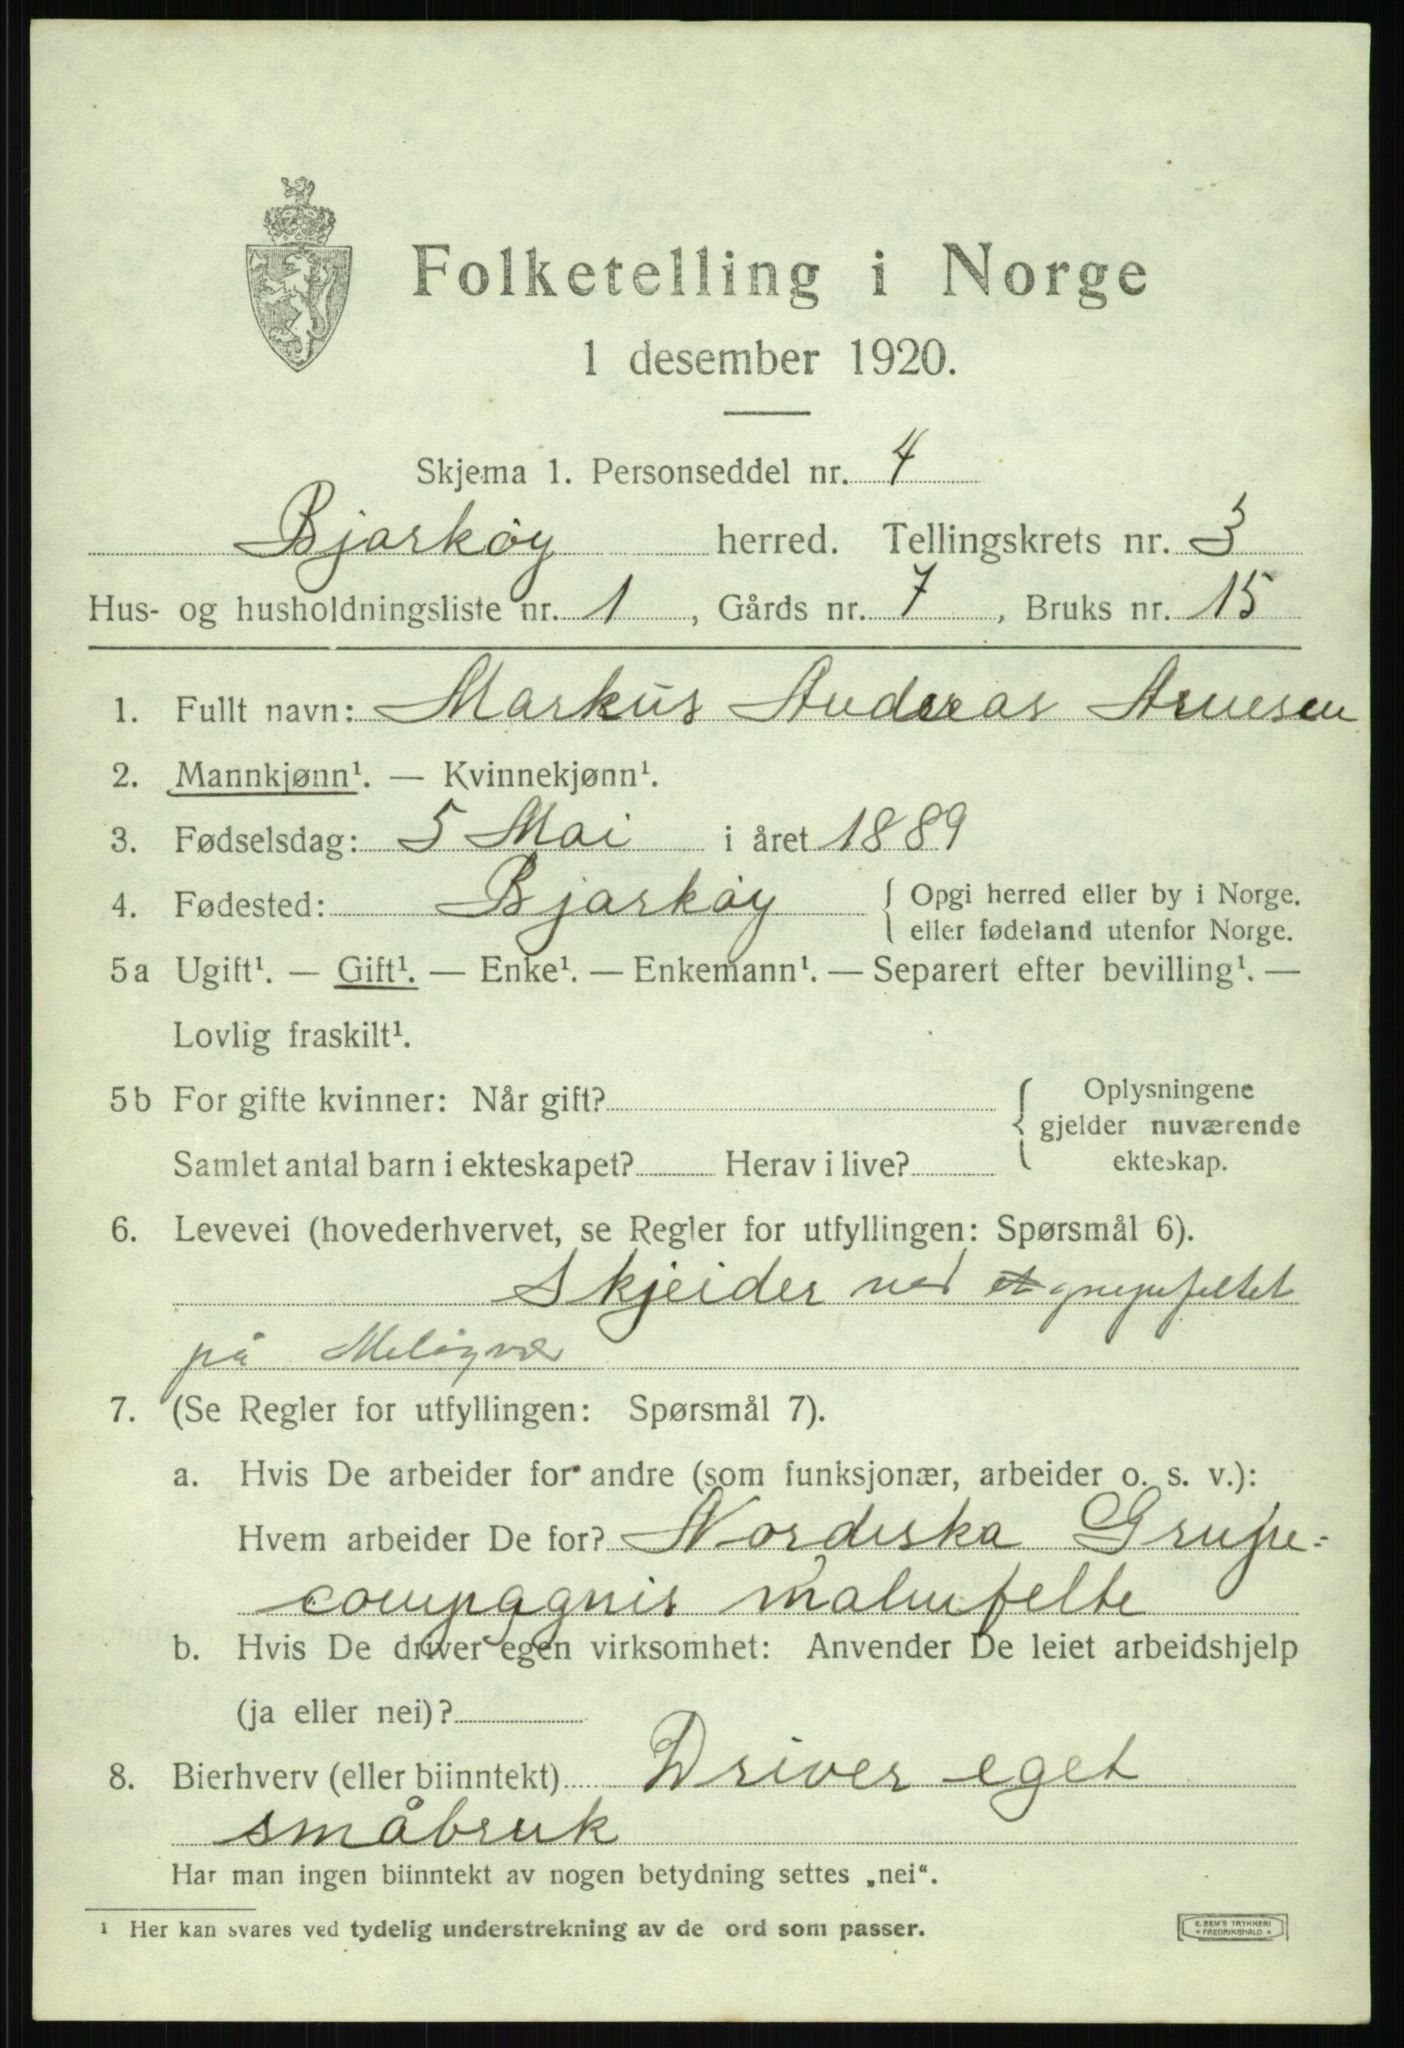 Folketelling i Norge
1 desember 1920.
Skjema 1. Personseddel nr. 4
Bjarkøy herred. Tellingskrets nr. 3
Hus- og husholdningsliste nr. 1, Gårds nr. 7, Bruks nr. 15
1. Fullt navn: Markus Andreas Arnesen
2. Mannkjønn¹. — Kvinnekjønn¹.
3. Fødselsdag: 5 Mai i året 1889
4. Fødested: Bjarkøy { Opgi herred eller by i Norge.
eller fødeland utenfor Norge.
5a Ugift¹. — Gift¹. — Enke¹. — Enkemann¹. — Separert efter bevilling¹. —
Lovlig fraskilt¹.
5b For gifte kvinner: Når gift? { Oplysningene
gjelder nuværende
Samlet antal barn i ekteskapet? Herav i live? ekteskap.
6. Levevei (hovederhvervet, se Regler for utfyllingen: Spørsmål 6).
Skjeider ved
på Meløyvær
7. (Se Regler for utfyllingen: Spørsmål 7).
a. Hvis De arbeider for andre (som funksjonær, arbeider o. s. v.):
Hvem arbeider De for? Nordiska Grupe-
compagnis malmfelte
b. Hvis De driver egen virksomhet: Anvender De leiet arbeidshjelp
(ja eller nei)?
8. Bierhverv (eller biinntekt) Driver eget
småbruk
Har man ingen biinntekt av nogen betydning settes „nei“.
¹ Her kan svares ved tydelig understrekning av de ord som passer.
E. SEM'S TRYKKERI
FREDRIKSHALD